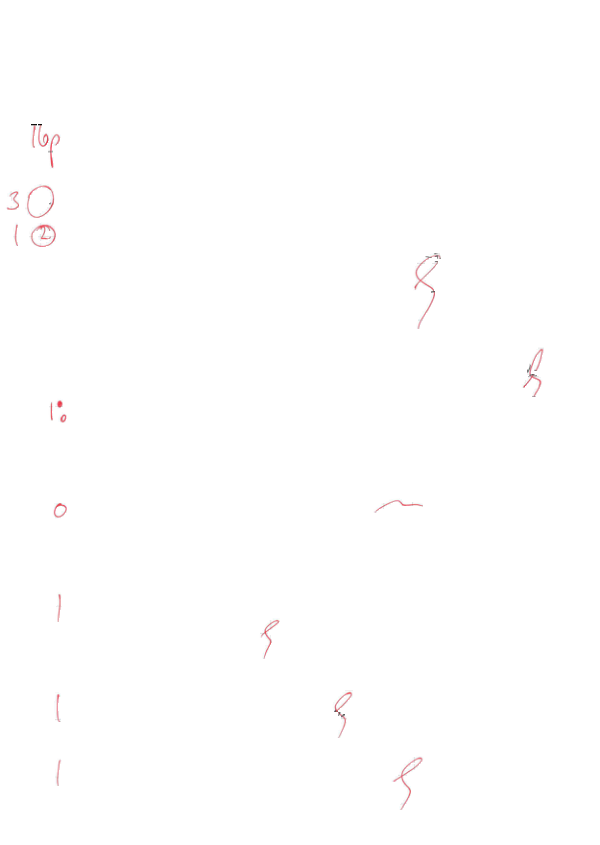 16p
3
1 2
1
0
1
1
1